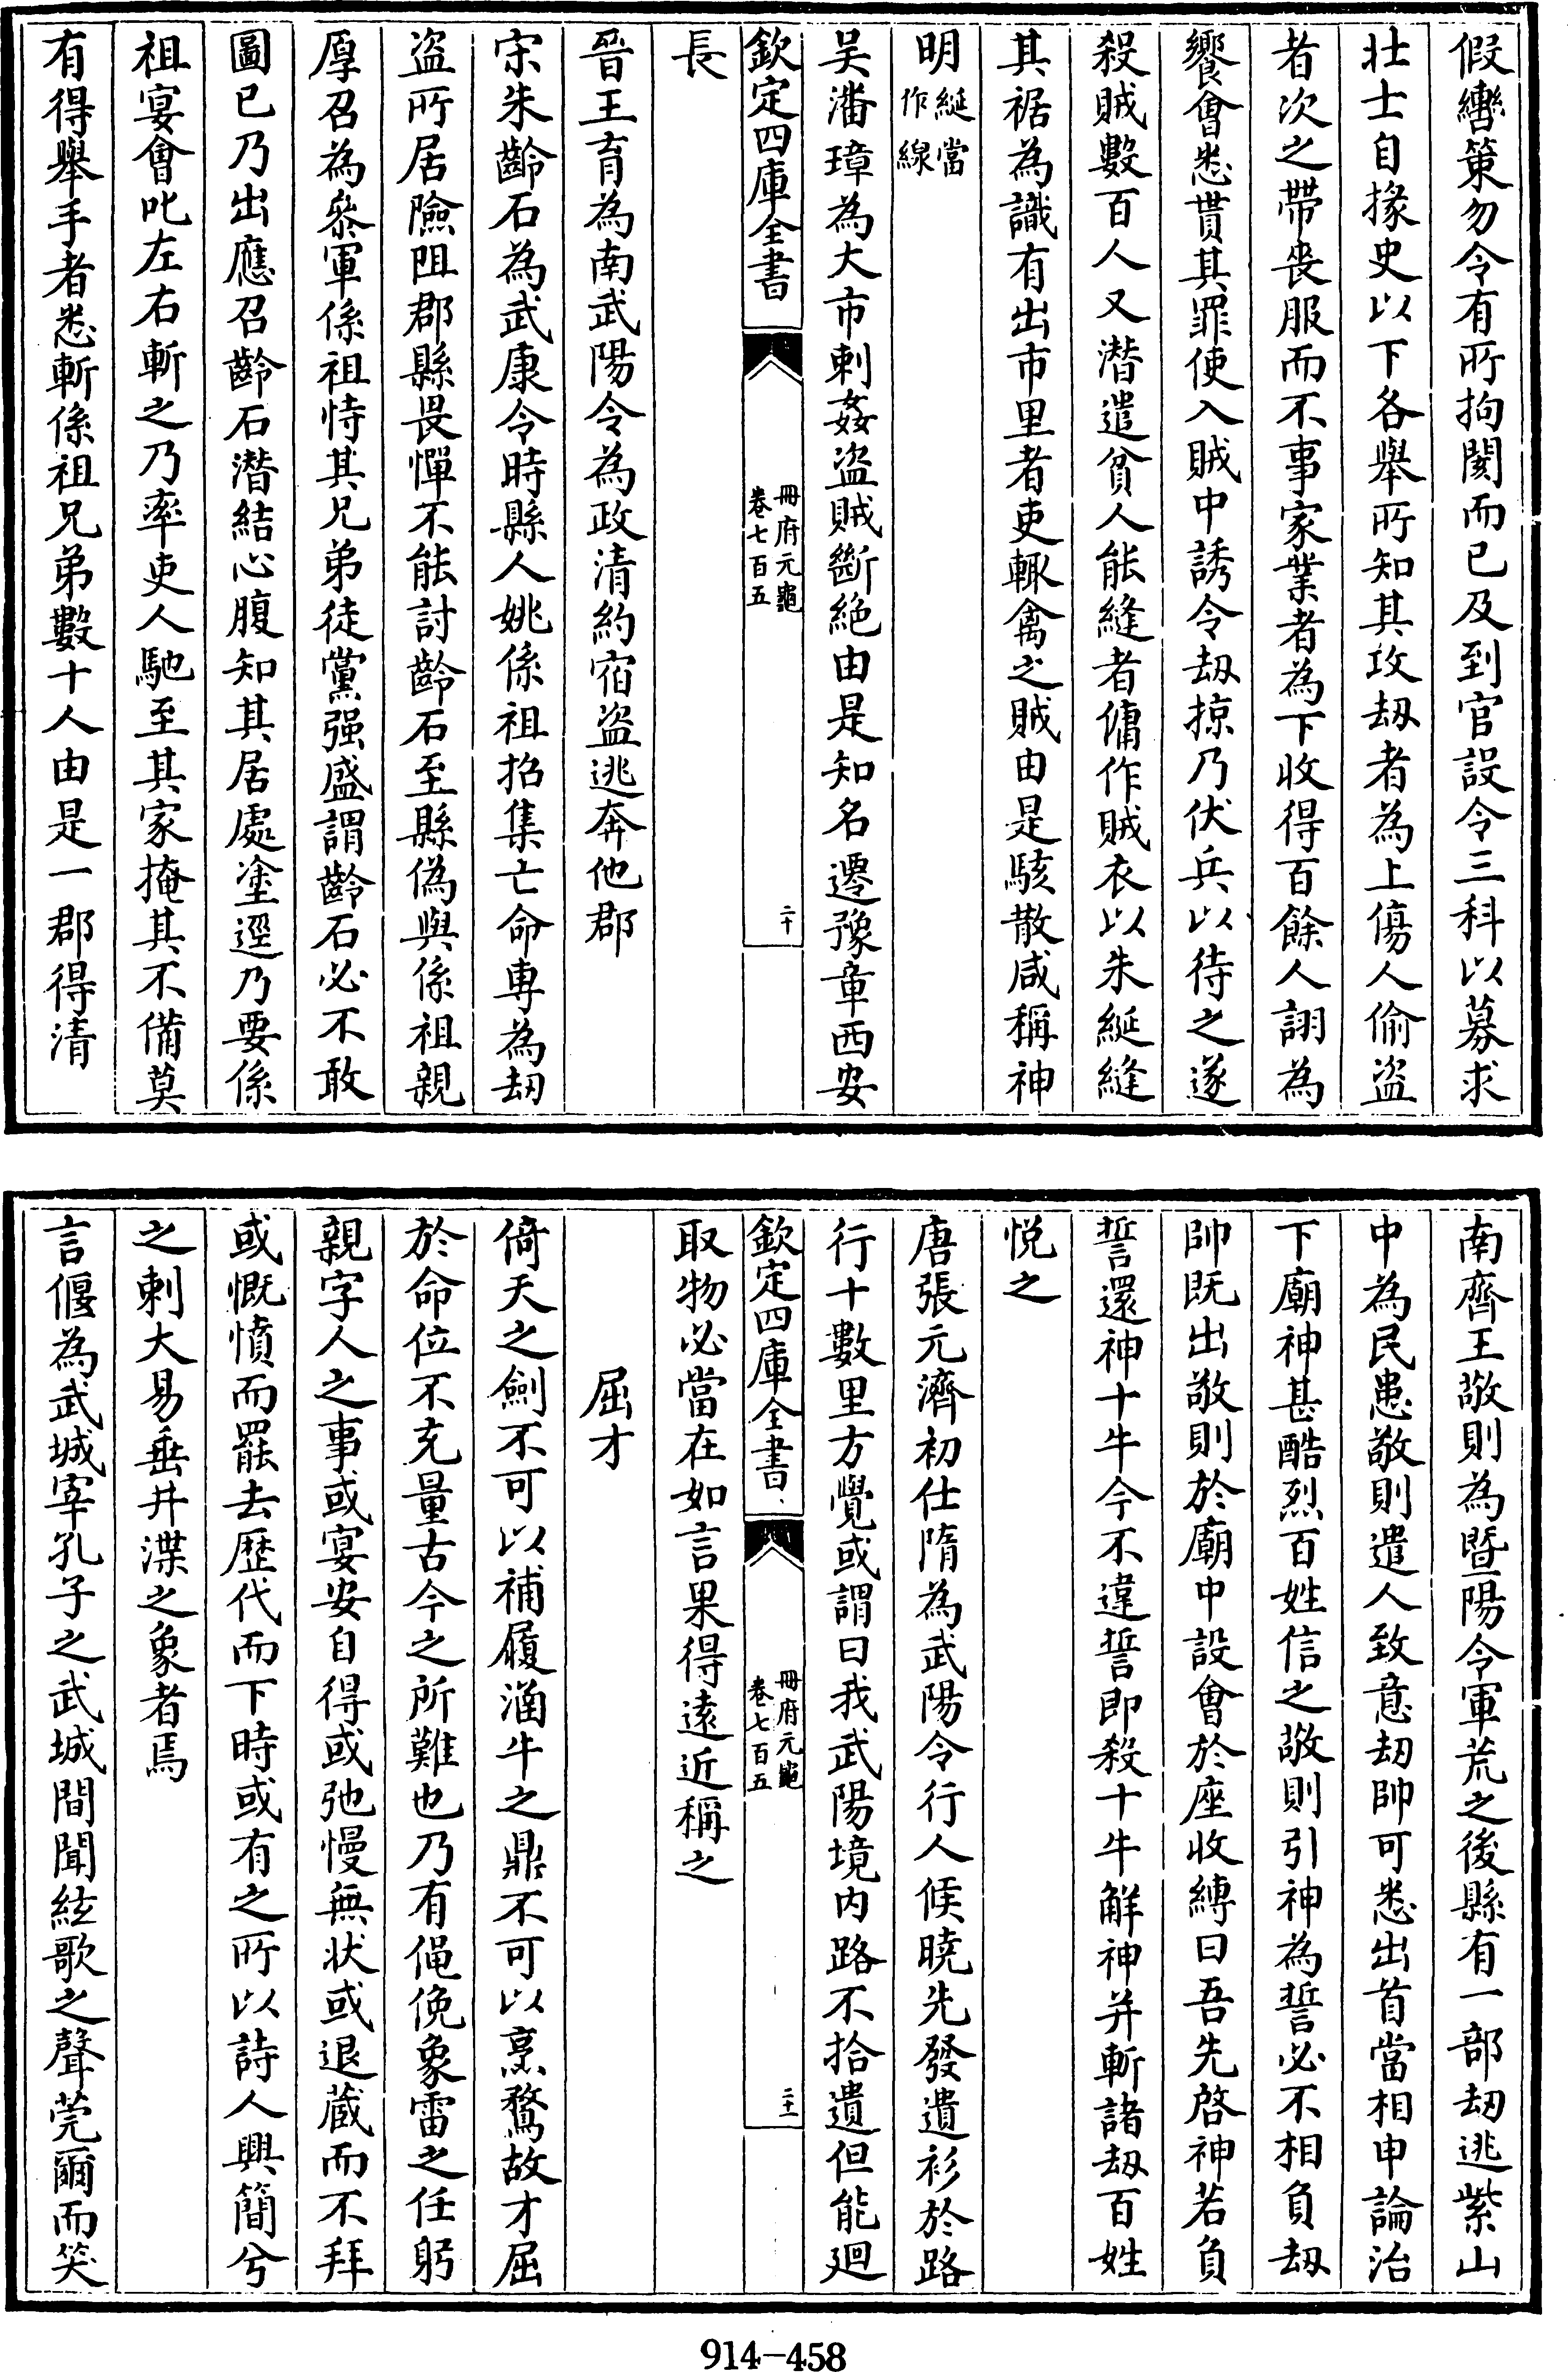 假轡策勿令有所拘閡而已及到官設令三科以募求
壯士自掾史以下各舉所知其攻刼者為上傷人偷盜
者次之帶喪服而不事家業者為下收得百餘人詡為
饗會悉貰其罪使入賊中誘令刼掠乃伏兵以待之遂
殺賊數百人又潛遣貧人能縫者傭作賊衣以朱綖縫
其裾為識有出市里者吏輒禽之賊由是駭散咸稱神
明綖當作線
吴潘璋為大市刺姦盜賊斷絶由是知名遷豫章西安
欽定四庫全書
冊府元龜
卷七百五
二十
長
晉王育為南武陽令為政清約宿盜逃奔他郡
宋朱齡石為武康令時縣人姚係祖招集亡命専為刼
盜所居險阻郡縣畏憚不能討齡石至縣偽與係祖親
厚召為叅軍係祖恃其兄弟徒黨强盛謂齡石必不敢
圖已乃出應召齡石潛結心腹知其居處塗逕乃要係
祖宴會叱左右斬之乃率吏人馳至其家掩其不備莫
有得舉手者悉斬係祖兄弟數十人由是一郡得清
南齊王敬則為暨陽令軍荒之後縣有一部刼逃紫山
中為民患敬則遣人致意刼帥可悉出首當相申論治
下廟神甚酷烈百姓信之敬則引神為誓必不相負刼
帥既出敬則於廟中設會於座收縛曰吾先啓神若負
誓還神十牛今不違誓即殺十牛解神并斬諸刼百姓
悦之
唐張元濟初仕隋為武陽令行人候曉先發遺衫於路
行十數里方覺或謂曰我武陽境内路不拾遺但能廻
欽定四庫全書
冊府元龜
卷七百五
二十一
取物必當在如言果得遠近稱之
屈才
倚天之劍不可以補履涵牛之鼎不可以烹鶩故才屈
於命位不充量古今之所難也乃有僶俛象雷之任躬
親字人之事或宴安自得或弛慢無狀或退蔵而不拜
或慨憤而罷去歴代而下時或有之所以詩人興簡兮
之刺大易垂井渫之象者焉
言偃為武城宰孔子之武城間聞絃歌之聲莞爾而笑
914-458